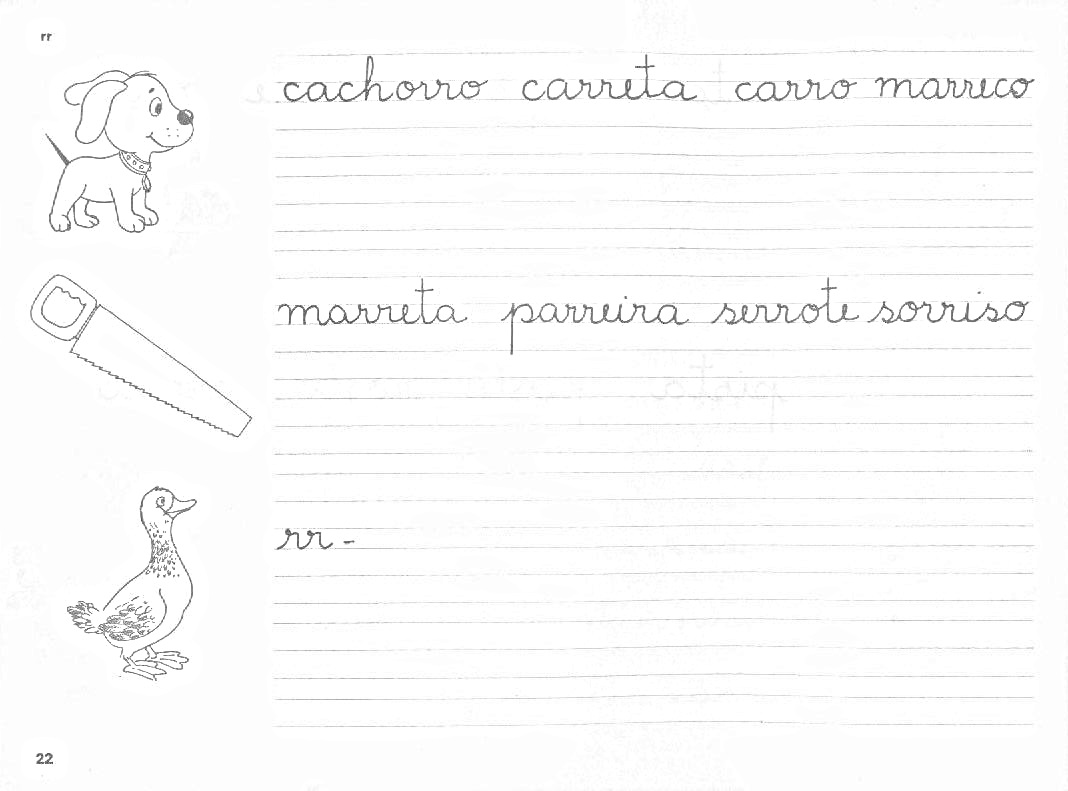 rr
cachorro carreta carro marreco
marreta parreira serrote sorriso
rr -
22